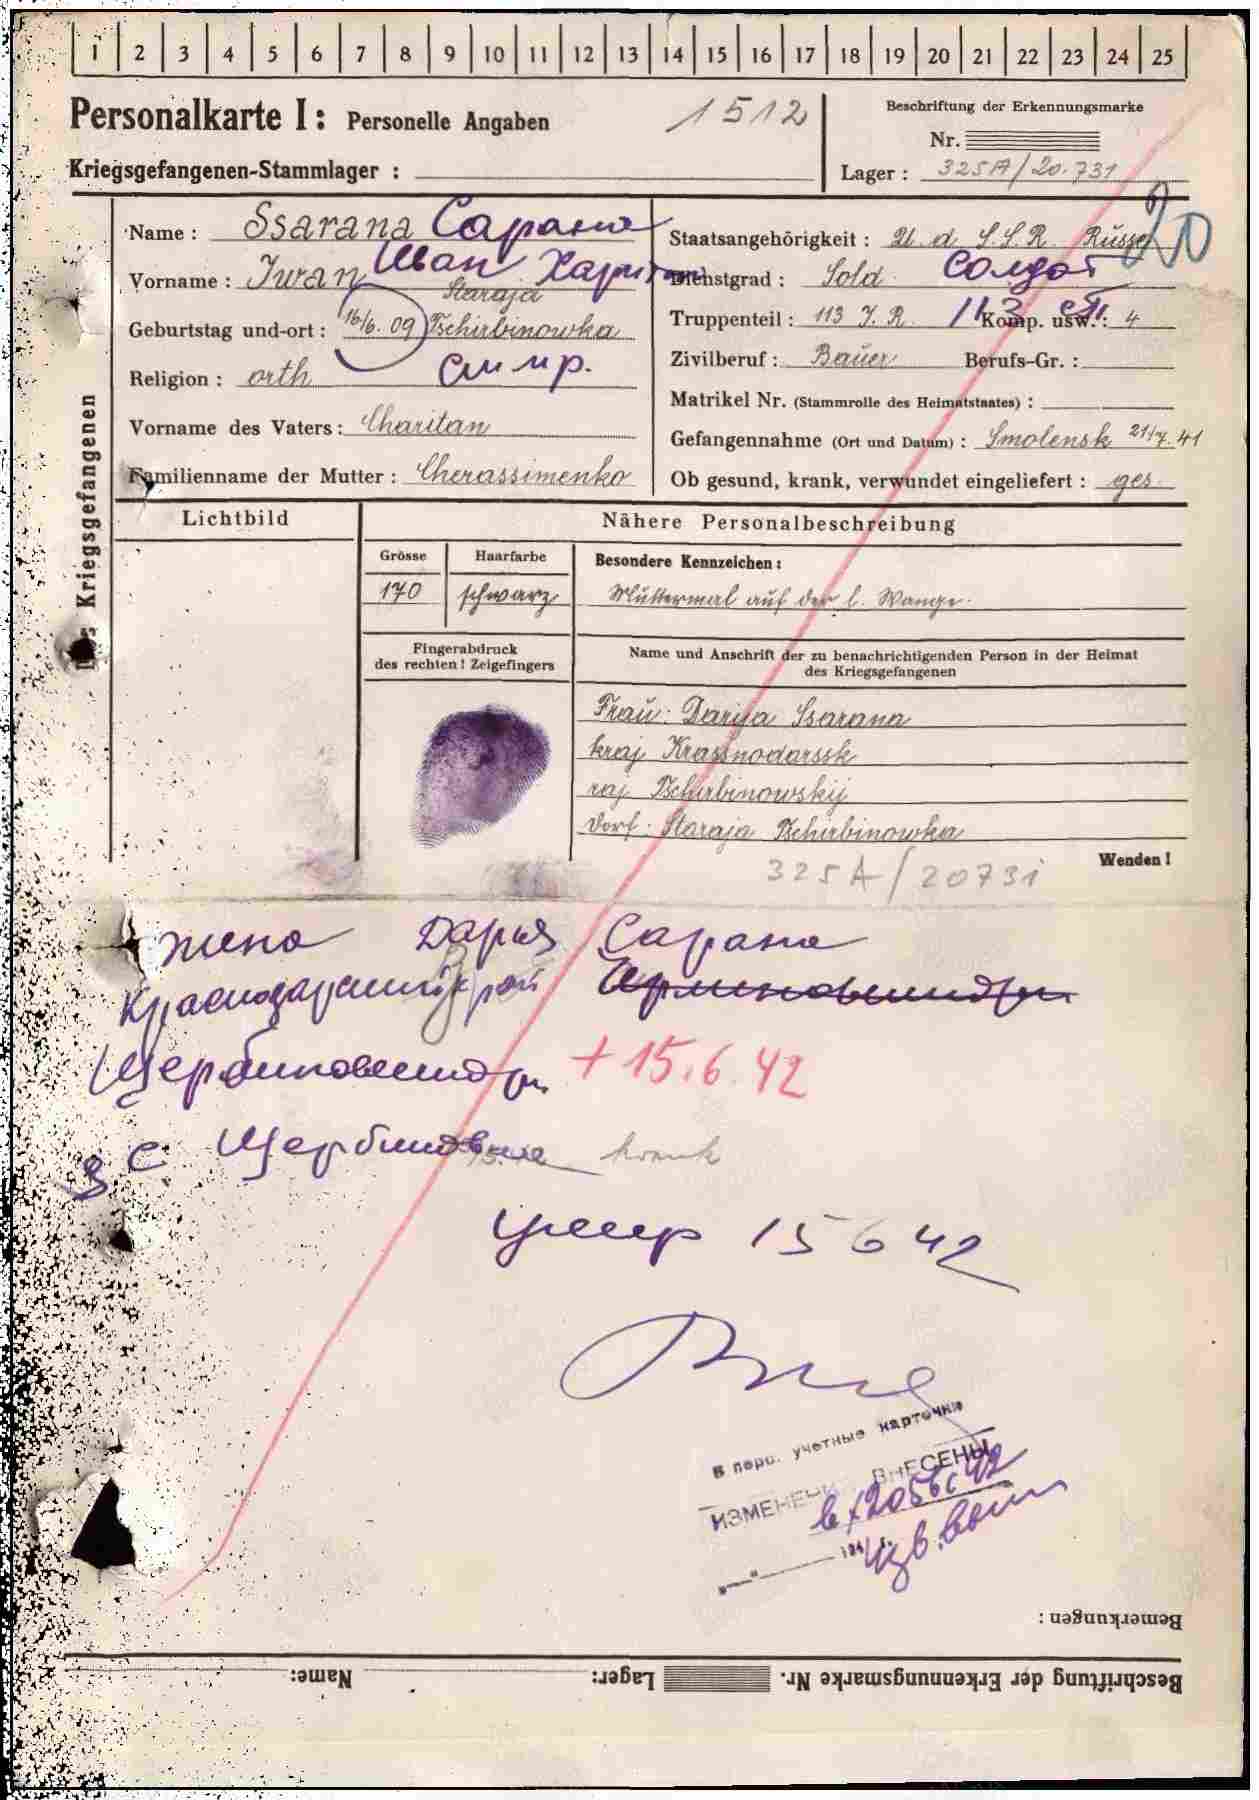 1 2 3 4 5 6 7 8 9 10 11 12 13 14 15 16 17 18 19 20 21 22 23 24 25
Personalkarte I: Personelle Angaben
1512
Beschriftung der Erkennungsmarke
Nr.
Kriegsgefangenen-Stammlager :
Lager : 325A/20.731
des Kriegsgefangenen
Name : Ssarana Сарана
Vorname : Iwan Иван Харитон
Geburtstag und -ort : 16/6. 09 Staraja Tschirbinowka
Religion : orth
Vorname des Vaters : Charitan
Familienname der Mutter : Cherassimenko
Staatsangehörigkeit : U. d. S.S.R. Russe
20
Dienstgrad : Sold. Солдат
Truppenteil : 113 J.R. 113 Komp. usw. : 4
Zivilberuf : Bauer Berufs-Gr. :
Matrikel Nr. (Stammrolle des Heimatstaates) :
Gefangennahme (Ort und Datum) : Smolensk 21/7. 41
Ob gesund, krank, verwundet eingeliefert : ges.
Lichtbild
Nähere Personalbeschreibung
Grösse
Haarfarbe
Besondere Kennzeichen :
170
schwarz
Muttermal auf der l. Wange.
Fingerabdruck
des rechten! Zeigefingers
Name und Anschrift der zu benachrichtigenden Person in der Heimat
des Kriegsgefangenen
Frau: Darija Ssarana
kraj Krassnodarssk
raj Tschirbinowskij
dorf. Staraja Tschirbinowka
Wenden!
325A/20731
жена Дарья Сарана
Краснодарский край
Щербиновский
+ 15.6.42
с Щербиновка
krank
умер 15 6 42
в перв. учетные карточки
ИЗМЕНЕНИЯ ВНЕСЕНЫ
194 г.
Bemerkungen :
Beschriftung der Erkennungsmarke Nr.
Lager:
Name: